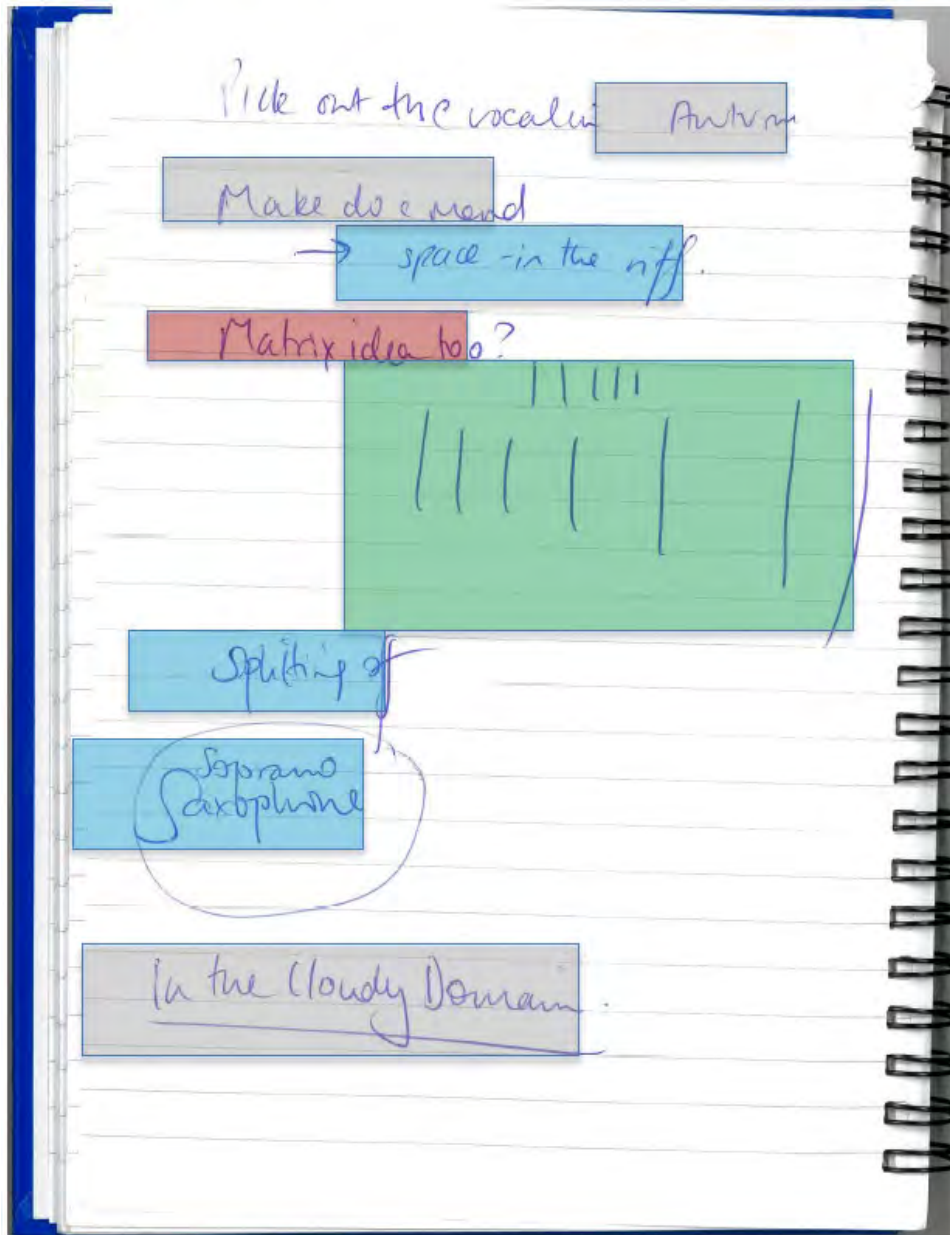 Pick out the vocal in Autumn
Make do & Mend
→ space in the riff.
Matrix idea too?
Splitting of
Soprano
Saxophone
In the Cloudy Domain.